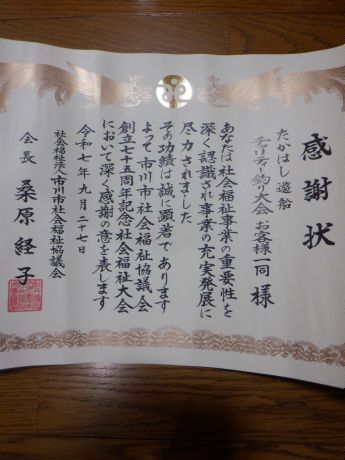 感謝状
たかはし遊船
チャリティー釣り大会 お客様一同 様
あなたは社会福祉事業の重要性を
深く認識され事業の充実発展に
尽力されました
その功績は誠に顕著であります
よって市川市社会福祉協議会
創立七十五周年記念社会福祉大会
において深く感謝の意を表します
令和七年九月二十七日
社会福祉法人市川市社会福祉協議会
会長 桑原経子